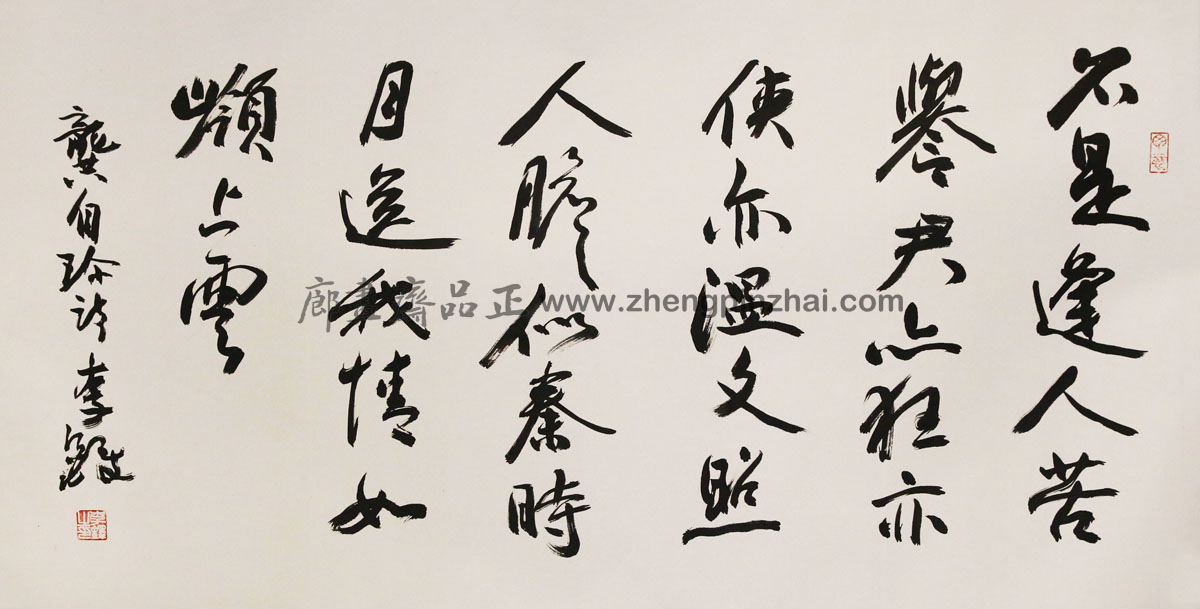 不是逢人苦
譽君亦狂亦
俠亦溫文照
人膽似秦時
月送我情如
嶺上雲
龔自珍詩 李
正品齋畫廊 www.zhengpinzhai.com